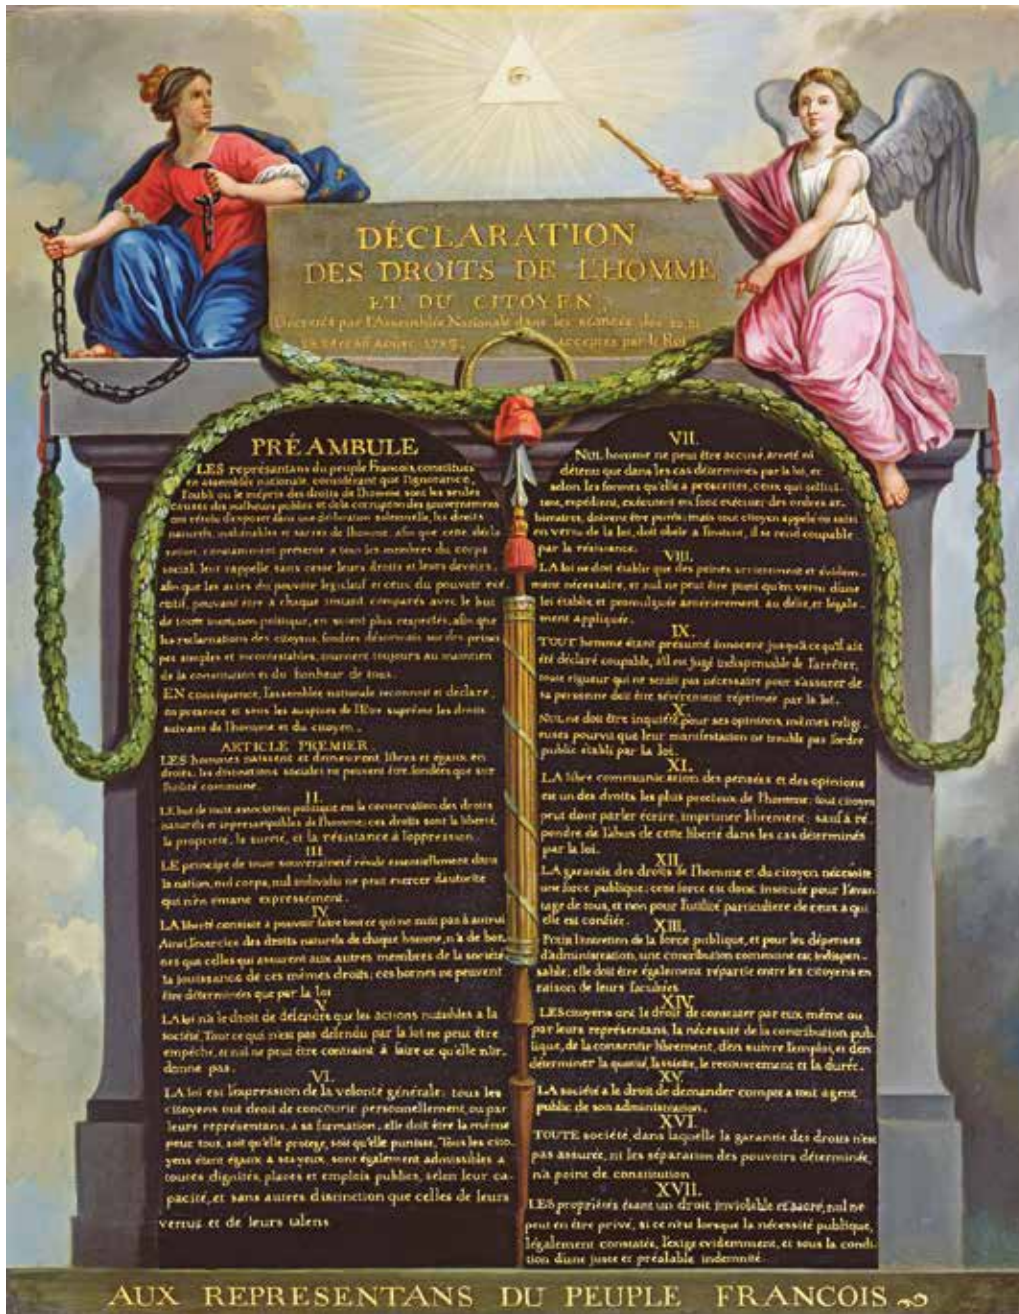 DÉCLARATION
DES DROITS DE L'HOMME
ET DU CITOYEN,
Décrétés par l'Assemblée Nationale dans les séances des 20, 21
aoust 1789, acceptés par le Roi
PRÉAMBULE
LES représentans du peuple François, constitués
en assemblée nationale, considérant que l'ignorance,
l'oubli ou le mépris des droits de l'homme sont les seules
causes des malheurs publics et de la corruption des gouvernemens
ont résolu d'exposer dans une déclaration solemnelle, les droits
naturels, inaliénables et sacrés de l'homme, afin que cette décla
ration, constamment présente a tous les membres du corps
social, leur rappelle sans cesse leurs droits et leurs devoirs,
afin que les actes du pouvoir législatif et ceux du pouvoir exé
cutif, pouvant être à chaque instant comparés avec le but
de toute institution politique, en soient plus respectés, afin que
les reclamations des citoyens, fondées désormais sur des princi
pes simples et incontestables, tournent toujours au maintien
de la constitution et du bonheur de tous.
EN conséquence, l'assemblée nationale reconnoit et déclare,
en presence et sous les auspices de l'Etre suprême les droits
suivans de l'homme et du citoyen.
ARTICLE PREMIER.
LES hommes naissent et demeurent libres et égaux en
droits. les distinctions sociales ne peuvent être fondées que sur
l'utilité commune.
II.
LE but de toute association politique est la conservation des droits
naturels et imprescriptibles de l'homme; ces droits sont la liberté,
la propriété, la sureté, et la résistance à l'oppression.
III
LE principe de toute souveraineté réside essentiellement dans
la nation, nul corps, nul individu ne peut exercer d'autorité
qui n'en émane expressément.
IV
LA liberté consiste a pouvoir faire tout ce qui ne nuit pas à autrui
Ainsi, l'exercice des droits naturels de chaque homme, n'a de bor-
nes que celles qui assurent aux autres membres de la société
la jouissance de ces mêmes droits; ces bornes ne peuvent
être déterminées que par la loi
V
LA loi n'a le droit de défendre que les actions nuisibles a la
société. Tout ce qui n'est pas défendu par la loi ne peut être
empêché, et nul ne peut être contraint à faire ce qu'elle n'or-
donne pas.
VI.
LA loi est l'expression de la volonté générale; tous les
citoyens ont droit de concourir personnellement, ou par
leurs représentans, a sa formation, elle doit être la même
pour tous, soit qu'elle protege, soit qu'elle punisse, Tous les cito
yens étant égaux a ses yeux, sont également admissibles a
toutes dignités, places et emplois publics, selon leur ca-
pacité, et sans autres distinction que celles de leurs
vertus et de leurs talens
VII.
NUL homme ne peut être accusé, arreté ni
détenu que dans les cas déterminés par la loi, et
selon les formes qu'elle a prescrites, ceux qui sollici-
tent, expédient, exécutent ou font exécuter des ordres ar-
bitraires, doivent être punis; mais tout citoyen appelé ou saisi
en vertu de la loi, doit obéir a l'instant, il se rend coupable
par la résistance.
VIII.
LA loi ne doit établir que des peines strictement et évidem-
ment nécessaire, et nul ne peut être puni qu'en vertu d'une
loi établie et promulguée antérieurement au délit, et légale-
ment appliquée.
IX.
TOUT homme étant présumé innocent jusqu'à ce qu'il ait
été déclaré coupable, s'il est jugé indispensable de l'arrêter,
toute rigueur qui ne serait pas nécessaire pour s'assurer de
sa personne doit être sévèrement réprimée par la loi.
X.
NUL ne doit être inquiété pour ses opinions, mêmes religi-
euses pourvu que leur manifestation ne trouble pas l'ordre
public établi par la loi.
XI.
LA libre communication des pensées et des opinions
est un des droits les plus precieux de l'homme; tout citoyen
peut donc parler écrire, imprimer librement; sauf a ré
pondre de l'abus de cette liberté dans les cas déterminés
par la loi.
XII.
LA garantie des droits de l'homme et du citoyen nécessite
une force publique; cette force est donc instituée pour l'avan-
tage de tous, et non pour l'utilité particuliere de ceux a qui
elle est confiée.
XIII.
Pour l'entretien de la force publique, et pour les dépenses
d'administration, une contribution commune est indispen-
sable; elle doit être également répartie entre les citoyens en
raison de leurs facultées
XIV.
LES citoyens ont le droit de constater par eux même ou
par leurs représentans, la nécessité de la contribution pub-
lique, de la consentir librement, d'en suivre l'emploi, et d'en
déterminer la quotité, l'assiette, le recouvrement et la durée.
XV.
LA société a le droit de demander compte a tout agent
public de son administration.
XVI.
TOUTE société, dans laquelle la garantie des droits n'est
pas assurée, ni les séparation des pouvoirs déterminée,
n'a point de constitution
XVII.
LES propriétés étant un droit inviolable et sacré, nul ne
peut en être privé, si ce n'est lorsque la nécessité publique,
légalement constatée, l'exige evidemment, et sous la condi-
tion d'une juste et préalable indemnité.
AUX REPRESENTANS DU PEUPLE FRANCOIS